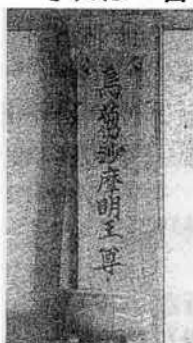 烏蒭沙摩明王尊